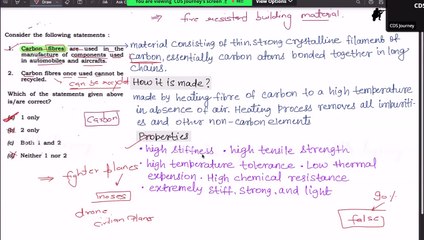 You are viewing CDS Journey's screen
CDS Journey
⇒ fire resisted building material
Consider the following statements :
1. Carbon fibres are used in the manufacture of components used in automobiles and aircrafts.
2. Carbon fibres once used cannot be recycled.
can be recycled
Which of the statements given above is/are correct?
(a) 1 only
(b) 2 only
(c) Both 1 and 2
(d) Neither 1 nor 2
Carbon
⇒ fighter planes
drone
Civilian planes
material consisting of thin, strong crystalline filaments of
carbon, essentially carbon atoms bonded together in long
chains.
How it is made?
made by heating fibre of carbon to a high temperature
in absence of air. Heating process removes all impurities
and other non-carbon elements
Properties
• high stiffness • high tensile strength
• high temperature tolerance • Low thermal
expension • High chemical resistance
• extremely stiff, strong, and light
90%
false